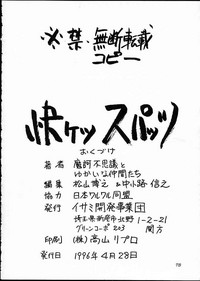 ※禁・無断転載
コピー
快ケツ スパッツ
おくづけ
著者 魔訶不思議と
ゆかいな仲間たち
編集 松山博之&中小路信之
協力 日本ワルワル同盟
発行 イサミ開発事業団
埼玉県新座市北野1-2-21
グリーンコーポ203
関方
印刷 (株)高山リプロ
発行日 1996年4月28日